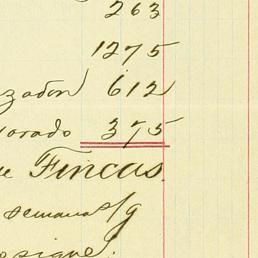 263
1275
zador) 612
lorado 375
ue Fincas.
semana s/g
esigue!